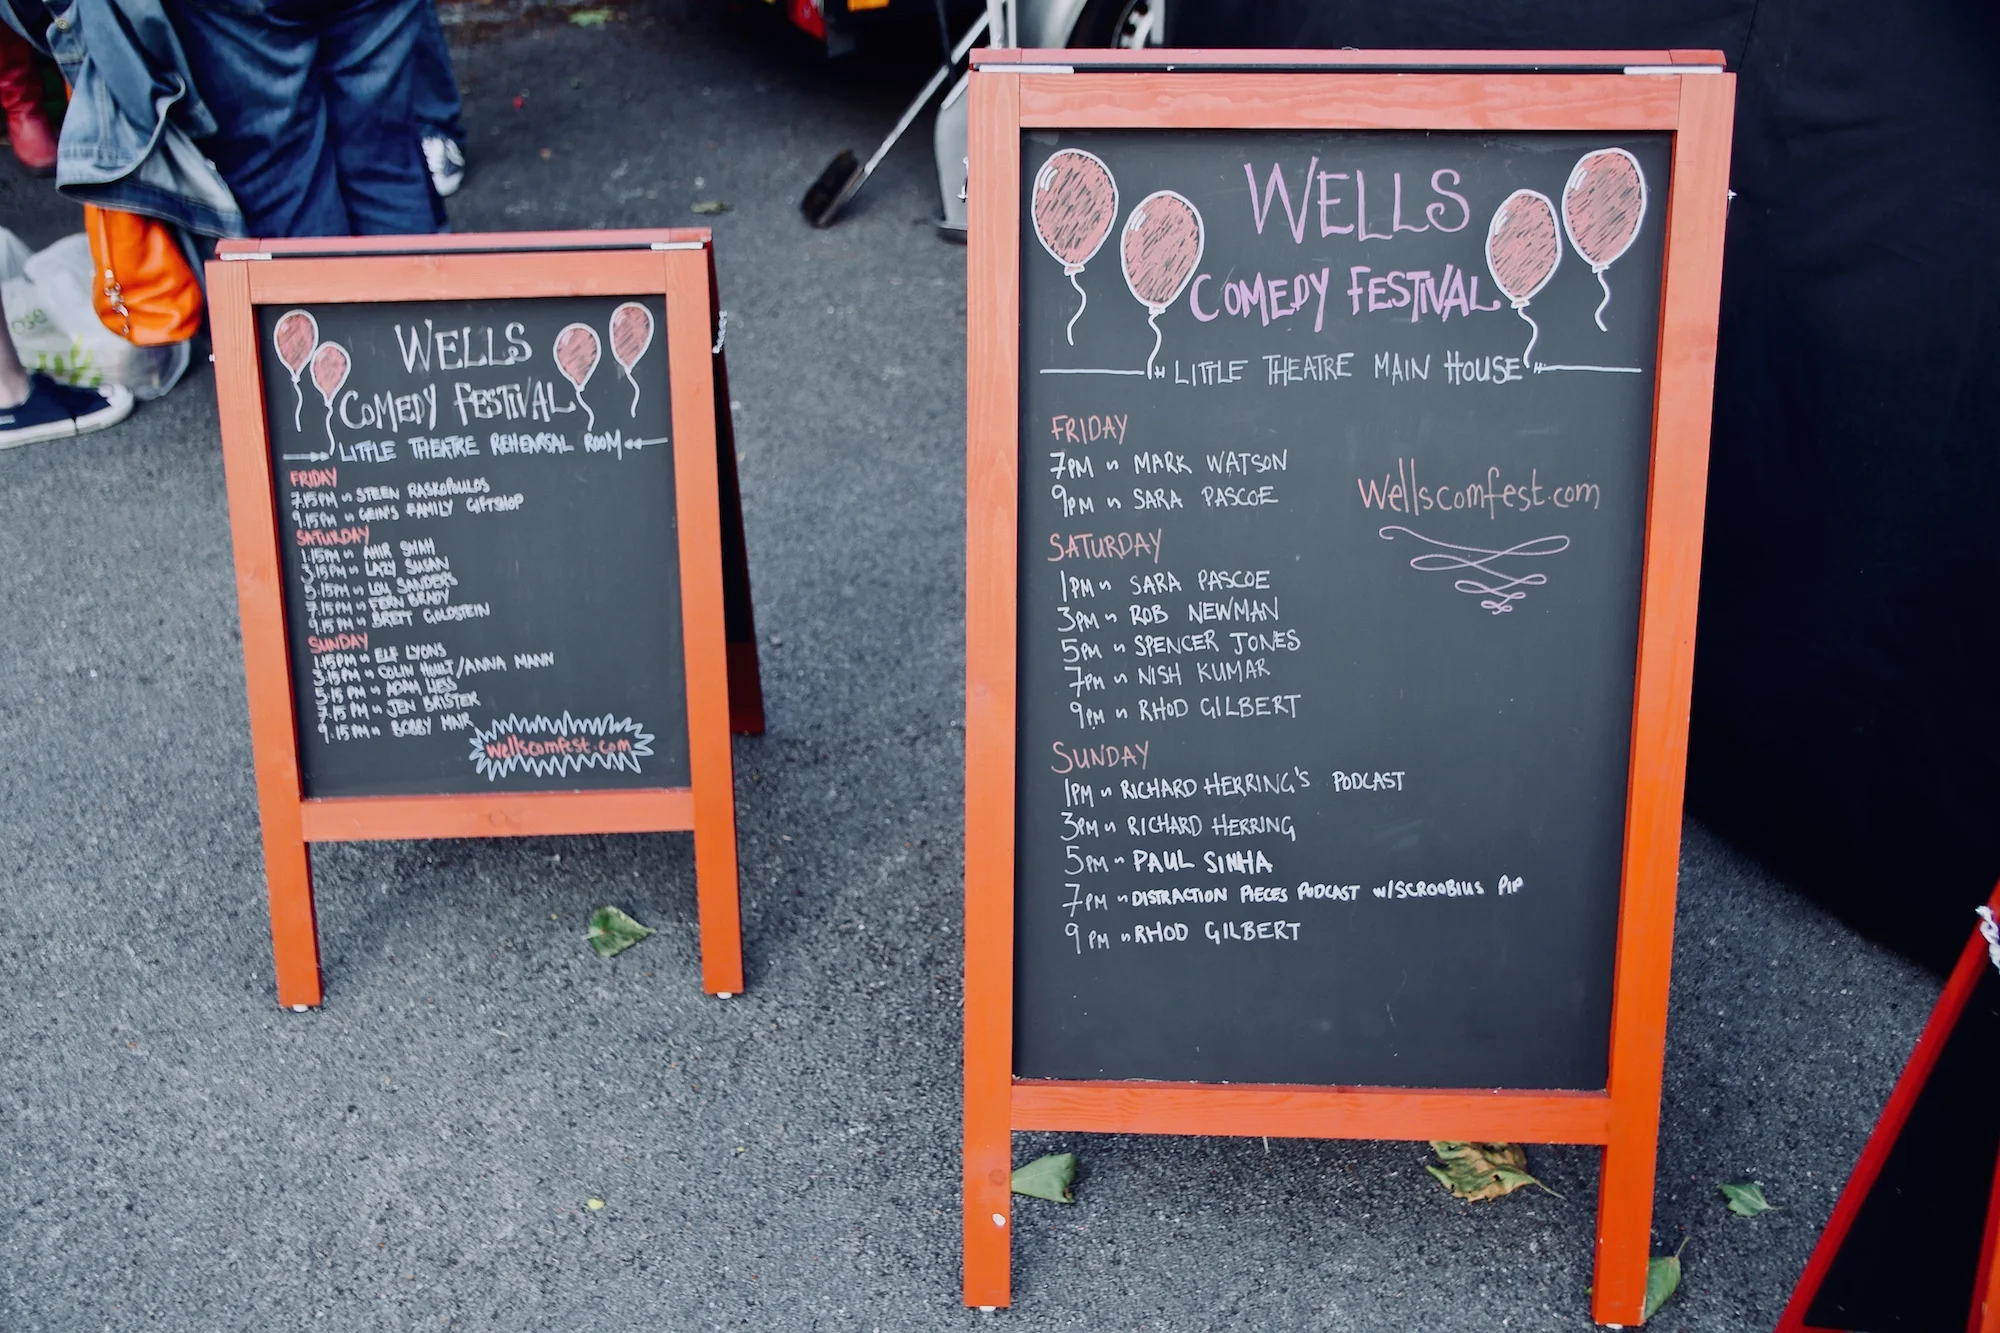 WELLS
COMEDY FESTIVAL
LITTLE THEATRE REHEARSAL ROOM
FRIDAY
7.15PM ~ STEEN RASKOPOULOS
9.15PM ~ GEIN'S FAMILY GIFTSHOP
SATURDAY
1.15PM ~ AHIR SHAH
3.15PM ~ LAZY SUSAN
5.15PM ~ LOU SANDERS
7.15PM ~ FERN BRADY
9.15PM ~ BRETT GOLDSTEIN
SUNDAY
1.15PM ~ ELF LYONS
3.15PM ~ COLIN HOULT/ANNA MANN
5.15PM ~ ADAM HESS
7.15PM ~ JEN BRISTER
9.15PM ~ BOBBY MAIR
wellscomfest.com
WELLS
COMEDY FESTIVAL
LITTLE THEATRE MAIN HOUSE
FRIDAY
7PM ~ MARK WATSON
9PM ~ SARA PASCOE
wellscomfest.com
SATURDAY
1PM ~ SARA PASCOE
3PM ~ ROB NEWMAN
5PM ~ SPENCER JONES
7PM ~ NISH KUMAR
9PM ~ RHOD GILBERT
SUNDAY
1PM ~ RICHARD HERRING'S PODCAST
3PM ~ RICHARD HERRING
5PM ~ PAUL SINHA
7PM ~ DISTRACTION PIECES PODCAST W/SCROOBIUS PIP
9PM ~ RHOD GILBERT